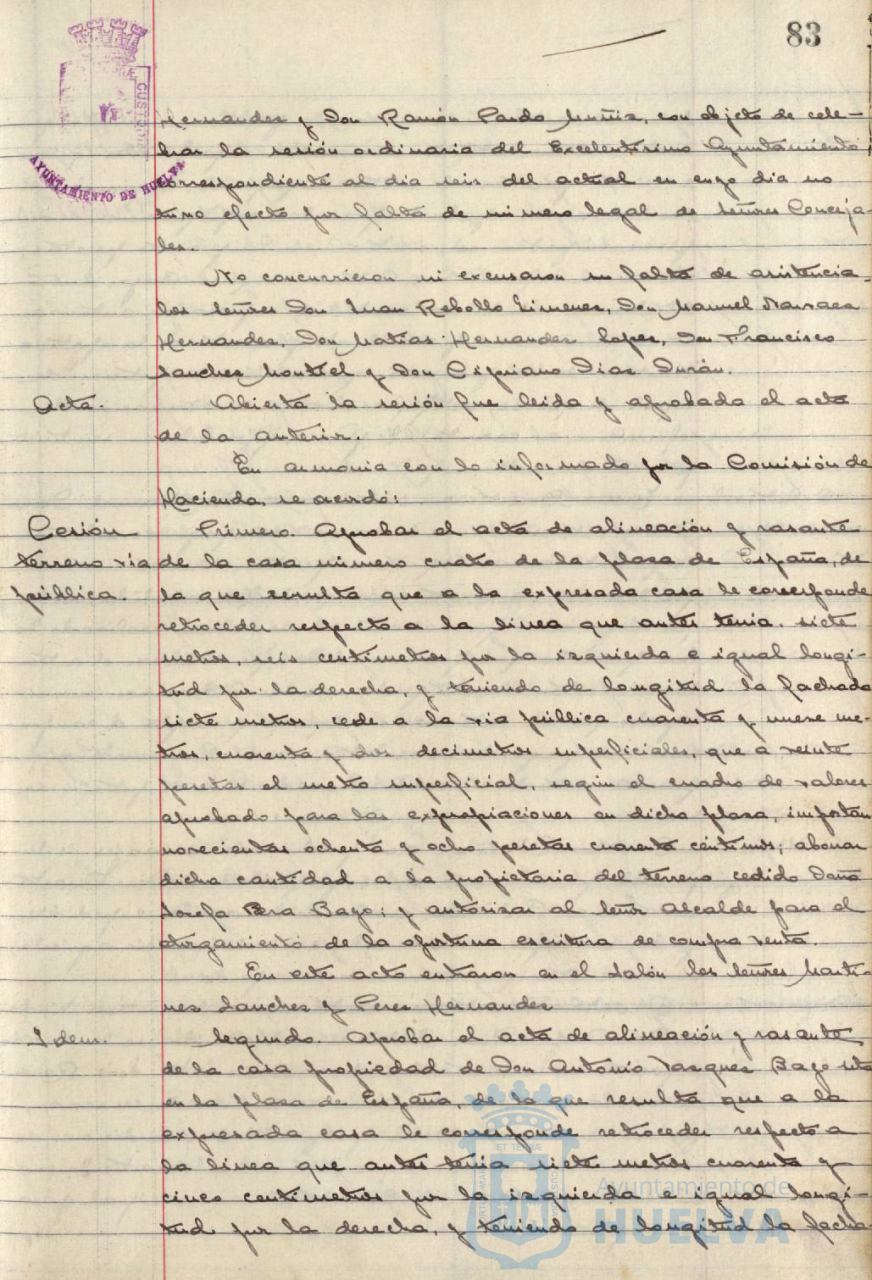 83
CUSTODIT
AYUNTAMIENTO DE HUELVA
Hernandez y Don Ramón Pardo Muñiz, con objeto de cele-
brar la sesión ordinaria del Excelentísimo Ayuntamiento
correspondiente al dia seis del actual en cuyo dia no
tuvo efecto por falta de número legal de Señores Conceja-
les.
No concurrieron ni excusaron su falta de asistencia
los Señores Don Juan Rebollo Jimenez, Don Manuel Narvaez
Hernandez, Don Matias Hernandez Lopez, Don Francisco
Sanchez Montiel y Don Cipriano Diaz Durán.
Acta.
Abierta la sesión fue leida y aprobada el acta
de la anterior.
En armonia con lo informado por la Comisión de
Hacienda, se acordó:
Cesión
terreno via
pública.
Primero. Aprobar el acta de alineación y rasante
de la casa número cuatro de la plaza de España, de
la que resulta que a la expresada casa le corresponde
retroceder respecto a la linea que antes tenia, siete
metros, seis centimetros por la izquierda e igual longi-
tud por la derecha, y teniendo de longitud la fachada
siete metros, cede a la via pública cuarenta y nueve me-
tros, cuarenta y dos decimetros superficiales, que a veinte
pesetas el metro superficial, según el cuadro de valores
aprobado para las expropiaciones en dicha plaza, importan
novecientas ochenta y ocho pesetas cuarenta céntimos; abonar
dicha cantidad a la propietaria del terreno cedido Doña
Josefa Bazo; y autorizar al Señor Alcalde para el
otorgamiento de la oportuna escritura de compra venta.
En este acto entraron en el Salón los Señores Marti-
nez Sanchez y Perez Hernandez
Idem.
Segundo. Aprobar el acta de alineación y rasante
de la casa propiedad de Don Antonio Vazquez Bazo sita
en la plaza de España, de la que resulta que a la
expresada casa le corresponde retroceder respecto a
la linea que antes tenia siete metros cuarenta y
cinco centimetros por la izquierda e igual longi-
tud por la derecha, y teniendo de longitud la facha-
Ayuntamiento de
HUELVA